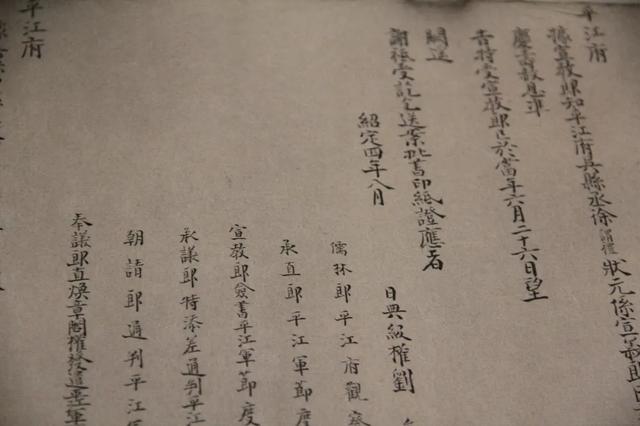 平江府
據宣教郎知平江府吳縣丞徐謂禮狀元係宣義郎
慶壽赦恩準
告特受宣教郎已於當年六月二十六日望
闕送
謝祗受訖乞送案批書印紙證應者
紹定四年八月
日典級權劉
儒林郎平江府觀察
承直郎平江軍節度
宣教郎僉書平江軍節度
承議郎特添差通判平江
朝請郎通判平江軍
奉議郎直煥章閣權發遣平江軍
平江府